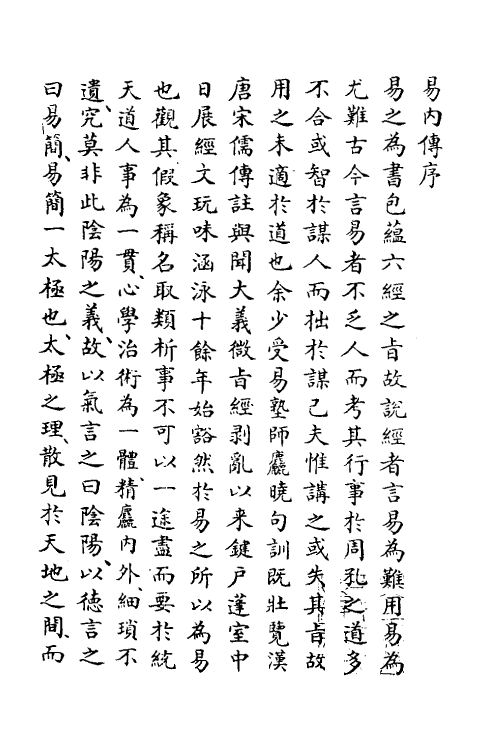 易內傳序
易之為書包蘊六經之旨故說經者言易為難用易為
尤難古今言易者不乏人而考其行事於周孔之道多
不合或智於謀人而拙於謀己夫惟講之或失其旨故
用之未適於道也余少受易塾師麤曉句訓既壯覽漢
唐宋儒傳註與聞大義微旨經剥亂以来鍵戶蓬室中
日展經文玩味涵泳十餘年始谿然於易之所以為易
也觀其假象稱名取類析事不可以一途盡而要於統
天道人事為一貫心學治術為一體精麤內外細瑣不
遺究莫非此陰陽之義故以氣言之曰陰陽以德言之
曰易簡易簡一太極也太極之理散見於天地之間而